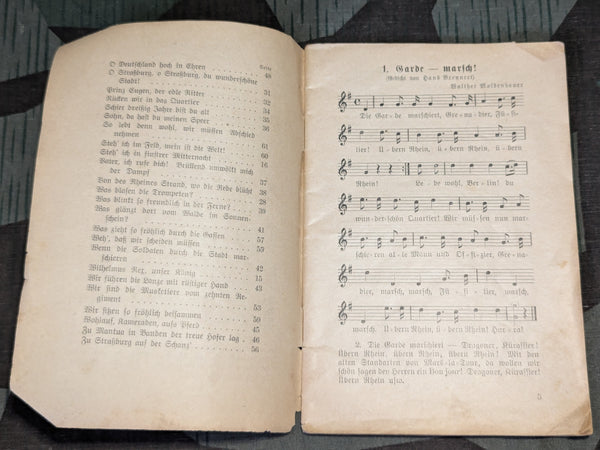 Seite
O Deutschland hoch in Ehren . . . . . 48
O Straßburg, o Straßburg, du wunderschöne
Stadt! . . . . . 34
Prinz Eugen, der edle Ritter . . . . . 31
Rücken wir in das Quartier . . . . . 32
Schier dreißig Jahre bist du alt . . . . . 24
Sohn, da hast du meinen Speer . . . . . 36
So lebt denn wohl, wir müssen Abschied
nehmen . . . . . 61
Steh' ich im Feld, mein ist die Welt! . . . 60
Steh' ich in finstrer Mitternacht . . . . . 16
Vater, ich rufe dich! Brüllend umwölkt mich
der Dampf . . . . . 37
Von des Rheines Strand, wo die Rebe blüht 38
Was blasen die Trompeten? . . . . . 28
Was blinkt so freundlich in der Ferne? . . . 39
Was glänzt dort vom Walde im Sonnen-
schein? . . . . . 41
Was zieht so fröhlich durch die Gassen . . 57
Weh', daß wir scheiden müssen . . . . . 59
Wenn die Soldaten durch die Stadt mar-
schieren . . . . . 42
Wilhelmus Rex, unser König . . . . . 15
Wir führen die Lanze mit rüstiger Hand . . 43
Wir sind die Musketiere vom zehnten Re-
giment . . . . . 53
Wir sitzen so fröhlich beisammen . . . . . 50
Wohlauf, Kameraden, aufs Pferd . . . . . 45
Zu Mantua in Banden der treue Hofer lag . 46
Zu Straßburg auf der Schanz' . . . . . 56
1. Garde — marsch!
(Gedicht von Hans Brennert)
Walther
Die Gar-de marschiert, Gre-na-dier, Fü-si-
lier! Ü-bern Rhein, ü-bern Rhein, ü-bern
Rhein! Le-be wohl, Ber-lin! du
wun-der-schön Quartier! Wir müs-sen nun mar-
schie-ren al-le Mann und Of-fi-zier, Gre-na-
dier, marsch, marsch, Fü-si-lier, marsch,
marsch. Ü-bern Rhein, ü-bern Rhein! Hur-ra!
2. Die Garde marschiert — Dragoner, Kürassier!
Übern Rhein, übern Rhein, übern Rhein! Mit den
alten Standarten von Mars-la-Tour, da wollen wir
schön sagen den Herren ein Bon jour! Dragoner, Kürassier!
Übern Rhein usw.
5